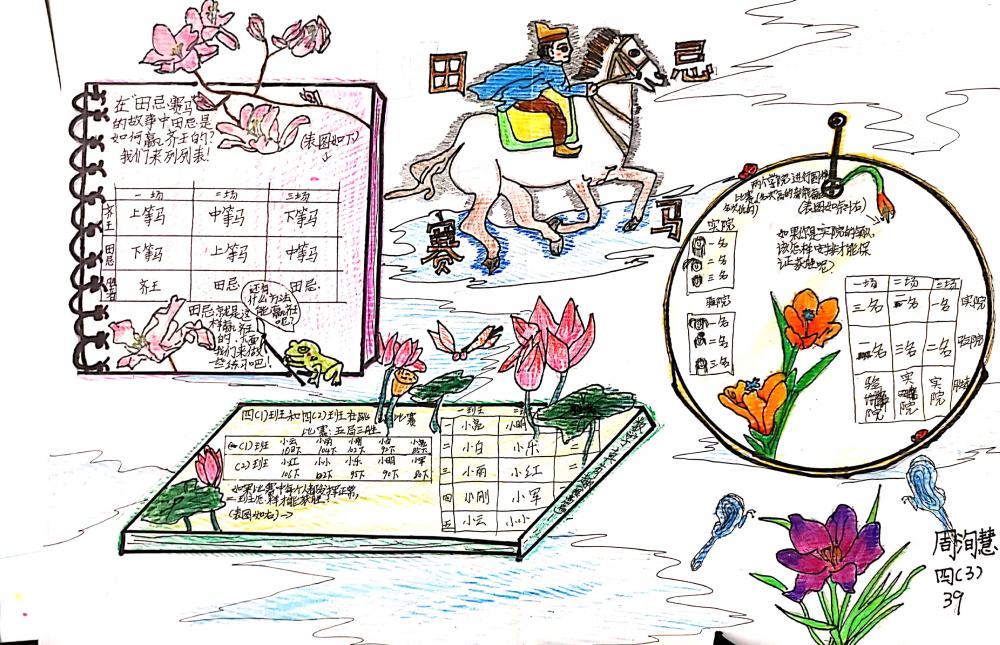 田忌赛马
在"田忌赛马"
的故事中田忌是
如何赢齐王的?
我们来列列表!
(表图如下)
↓
一场 二场 三场
齐王 上等马 中等马 下等马
田忌 下等马 上等马 中等马
齐王 田忌 田忌
还有
什么方法
能赢齐王
吧?
田忌就是这
样赢齐王
的,下面
我们来做
一些练习吧!
两个学院进行围棋
比赛
(表图如右)
如果你是实院的领队,
该怎样安排才能保
证获胜呢?
实院
一名
二名
三名
一名
二名
三名
一场 二场 三场
三名 一名 实院
二名 三名 二名
实院 实院
四(1)班和四(2)班在跳 比赛
比赛:五局三胜
(1)班 小云 小丽 小刚 小白 小亮
(2)班 小红 小小 小乐 小明 小军
106下 102下 95下 90下 80下
如果比赛中每个人都发挥正常,
二班怎样才能获胜?
(表图如右)→
一班 二
一 小亮 小明
二 小白 小乐 二
三 小丽 小红 二
四 小刚 小军
五 小云 小小
周洵慧
四(3)
39